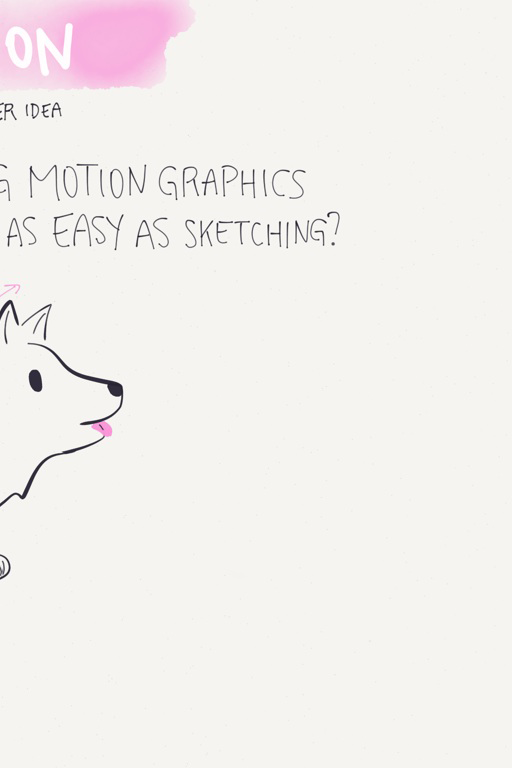 ON
ER IDEA
G MOTION GRAPHICS
AS EASY AS SKETCHING?